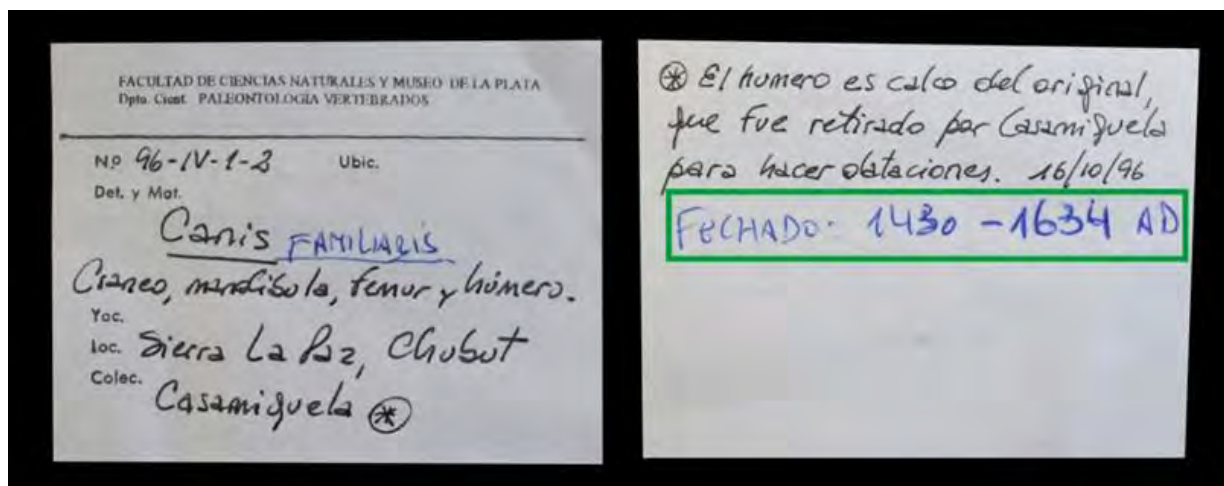 FACULTAD DE CIENCIAS NATURALES Y MUSEO DE LA PLATA
Dpto. Cient. PALEONTOLOGIA VERTEBRADOS
Nº 96-IV-1-2 Ubic.
Det. y Mat.
Canis FAMILIARIS
Craneo, mandíbula, femur y húmero.
Yac.
Loc. Sierra La Paz, Chubut
Colec. Casamiquela *
* El humero es calco del original,
que fue retirado por Casamiquela
para hacer dataciones. 16/10/96
FECHADO: 1430 - 1634 AD